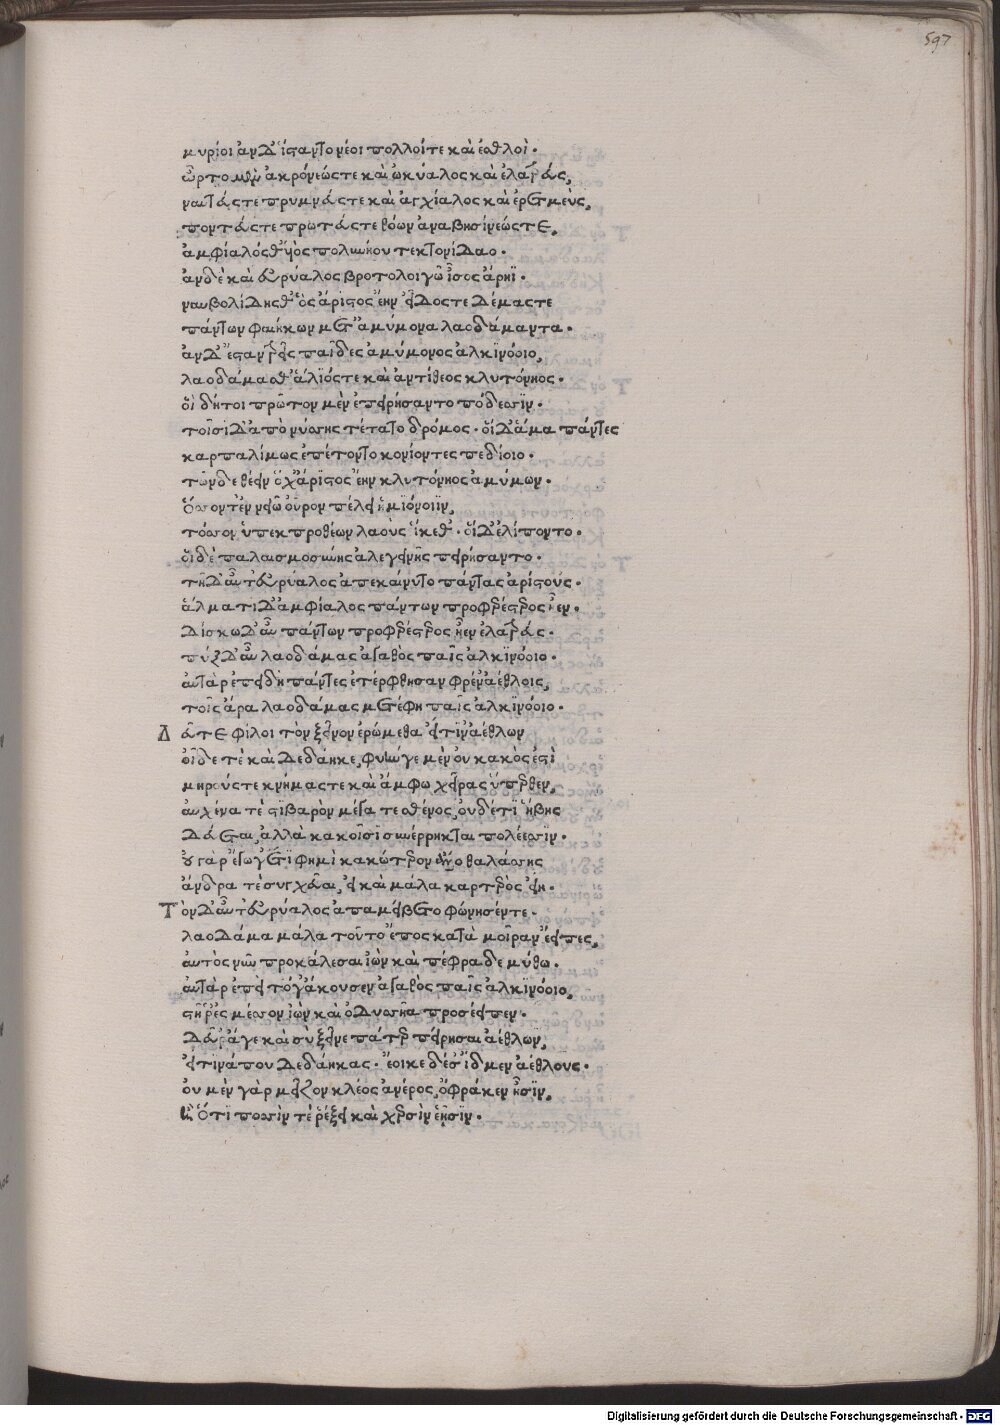 597
μυρίοι ἀν δ' ἵσταντο νέοι πολλοί τε καὶ ἐσθλοί·
ὦρτο μὲν ἀκρόνεώς τε καὶ ὠκύαλος καὶ ἐλατρεύς,
ναυτεύς τε πρυμνεύς τε καὶ ἀγχίαλος καὶ ἐρετμεύς,
ποντεύς τε πρωτεύς τε θόων ἀναβησίνεώς τε,
ἀμφίαλός θ' υἱὸς πολυνήου τεκτονίδαο·
ἀν δὲ καὶ εὐρύαλος βροτολοιγῶ ἶσος ἄρηϊ·
ναυβολίδης θ' ὃς ἄριστος ἔην εἶδός τε δέμας τε
πάντων φαιήκων μετ' ἀμύμονα λαοδάμαντα·
ἀν δ' ἔσταν τρεῖς παῖδες ἀμύμονος ἀλκινόοιο,
λαοδάμας θ' ἅλιός τε καὶ ἀντίθεος κλυτόνηος·
οἳ δή τοι πρῶτον μὲν ἐπειρήσαντο πόδεσσιν·
τοῖσι δ' ἀπὸ νύσσης τέτατο δρόμος· οἳ δ' ἅμα πάντες
καρπαλίμως ἐπέτοντο κονίοντες πεδίοιο·
τῶν δε θέειν ὄχ' ἄριστος ἔην κλυτόνηος ἀμύμων·
ὅσσον τ' ἐν νειῶ οὖρον πέλει ἡμιόνοιϊν,
τόσσον ὑπεκπροθέων λαοὺς ἵκεθ'· οἳ δ' ἐλίποντο·
οἳ δὲ παλαισμοσύνης ἀλεγεινῆς πειρήσαντο·
τῆ δ' αὖτ' εὐρύαλος ἀπεκαίνυτο πάντας ἀρίστους·
ἅλματι δ' ἀμφίαλος πάντων προφερέστερος ἦεν·
δίσκω δ' αὖ πάντων προφερέστερος ἦεν ἐλατρεύς·
πὺξ δ' αὖ λαοδάμας ἀγαθὸς παῖς ἀλκινόοιο·
αὐτὰρ ἐπειδὴ πάντες ἐτέρφθησαν φρέν' ἀέθλοις,
τοῖς ἄρα λαοδάμας μετέφη παῖς ἀλκινόοιο·
Δεῦτε φίλοι τὸν ξεῖνον ἐρώμεθα εἴ τιν' ἄεθλον
οἶδέ τε καὶ δεδάηκε, φυήν γε μὲν οὐ κακὸς ἐστὶ
μηρούς τε κνήμας τε καὶ ἄμφω χεῖρας ὕπερθεν,
αὐχένα τὲ στιβαρὸν μέγα τε σθένος, οὐδέ τι ἥβης
δεύεται, ἀλλὰ κακοῖσι συνέρρηκται πολέεσσιν·
οὐ γὰρ ἔγωγέ τί φημὶ κακώτερον ἄλλο θαλάσσης
ἄνδρα τὲ συγχεῦαι, εἰ καὶ μάλα καρτερὸς εἴη·
Τὸν δ' αὖτ' εὐρύαλος ἀπαμείβετο φώνησέν τε·
λαοδάμα μάλα τοῦτο ἔπος κατὰ μοῖραν ἔειπες,
αὐτὸς νῦν προκάλεσσαι ἰὼν καὶ πέφραδε μύθω·
αὐτὰρ ἐπεὶ τόγ' ἄκουσεν ἀγαθὸς παῖς ἀλκινόοιο,
στῆ ῥ' ἐς μέσσον ἰὼν καὶ ὀδυσσῆα προσέειπεν·
δεῦρ' ἄγε καὶ σὺ ξεῖνε πάτερ πείρησαι ἀέθλων,
εἴ τινά που δεδάηκας· ἔοικε δέ σ' ἴδμεν ἀέθλους·
οὐ μὲν γὰρ μεῖζον κλέος ἀνέρος, ὄφρα κεν ᾖσιν,
ἢ ὅ τι ποσσίν τὲ ῥέξει καὶ χερσὶν ἑῆσιν·
Digitalisierung gefördert durch die Deutsche Forschungsgemeinschaft - DFG